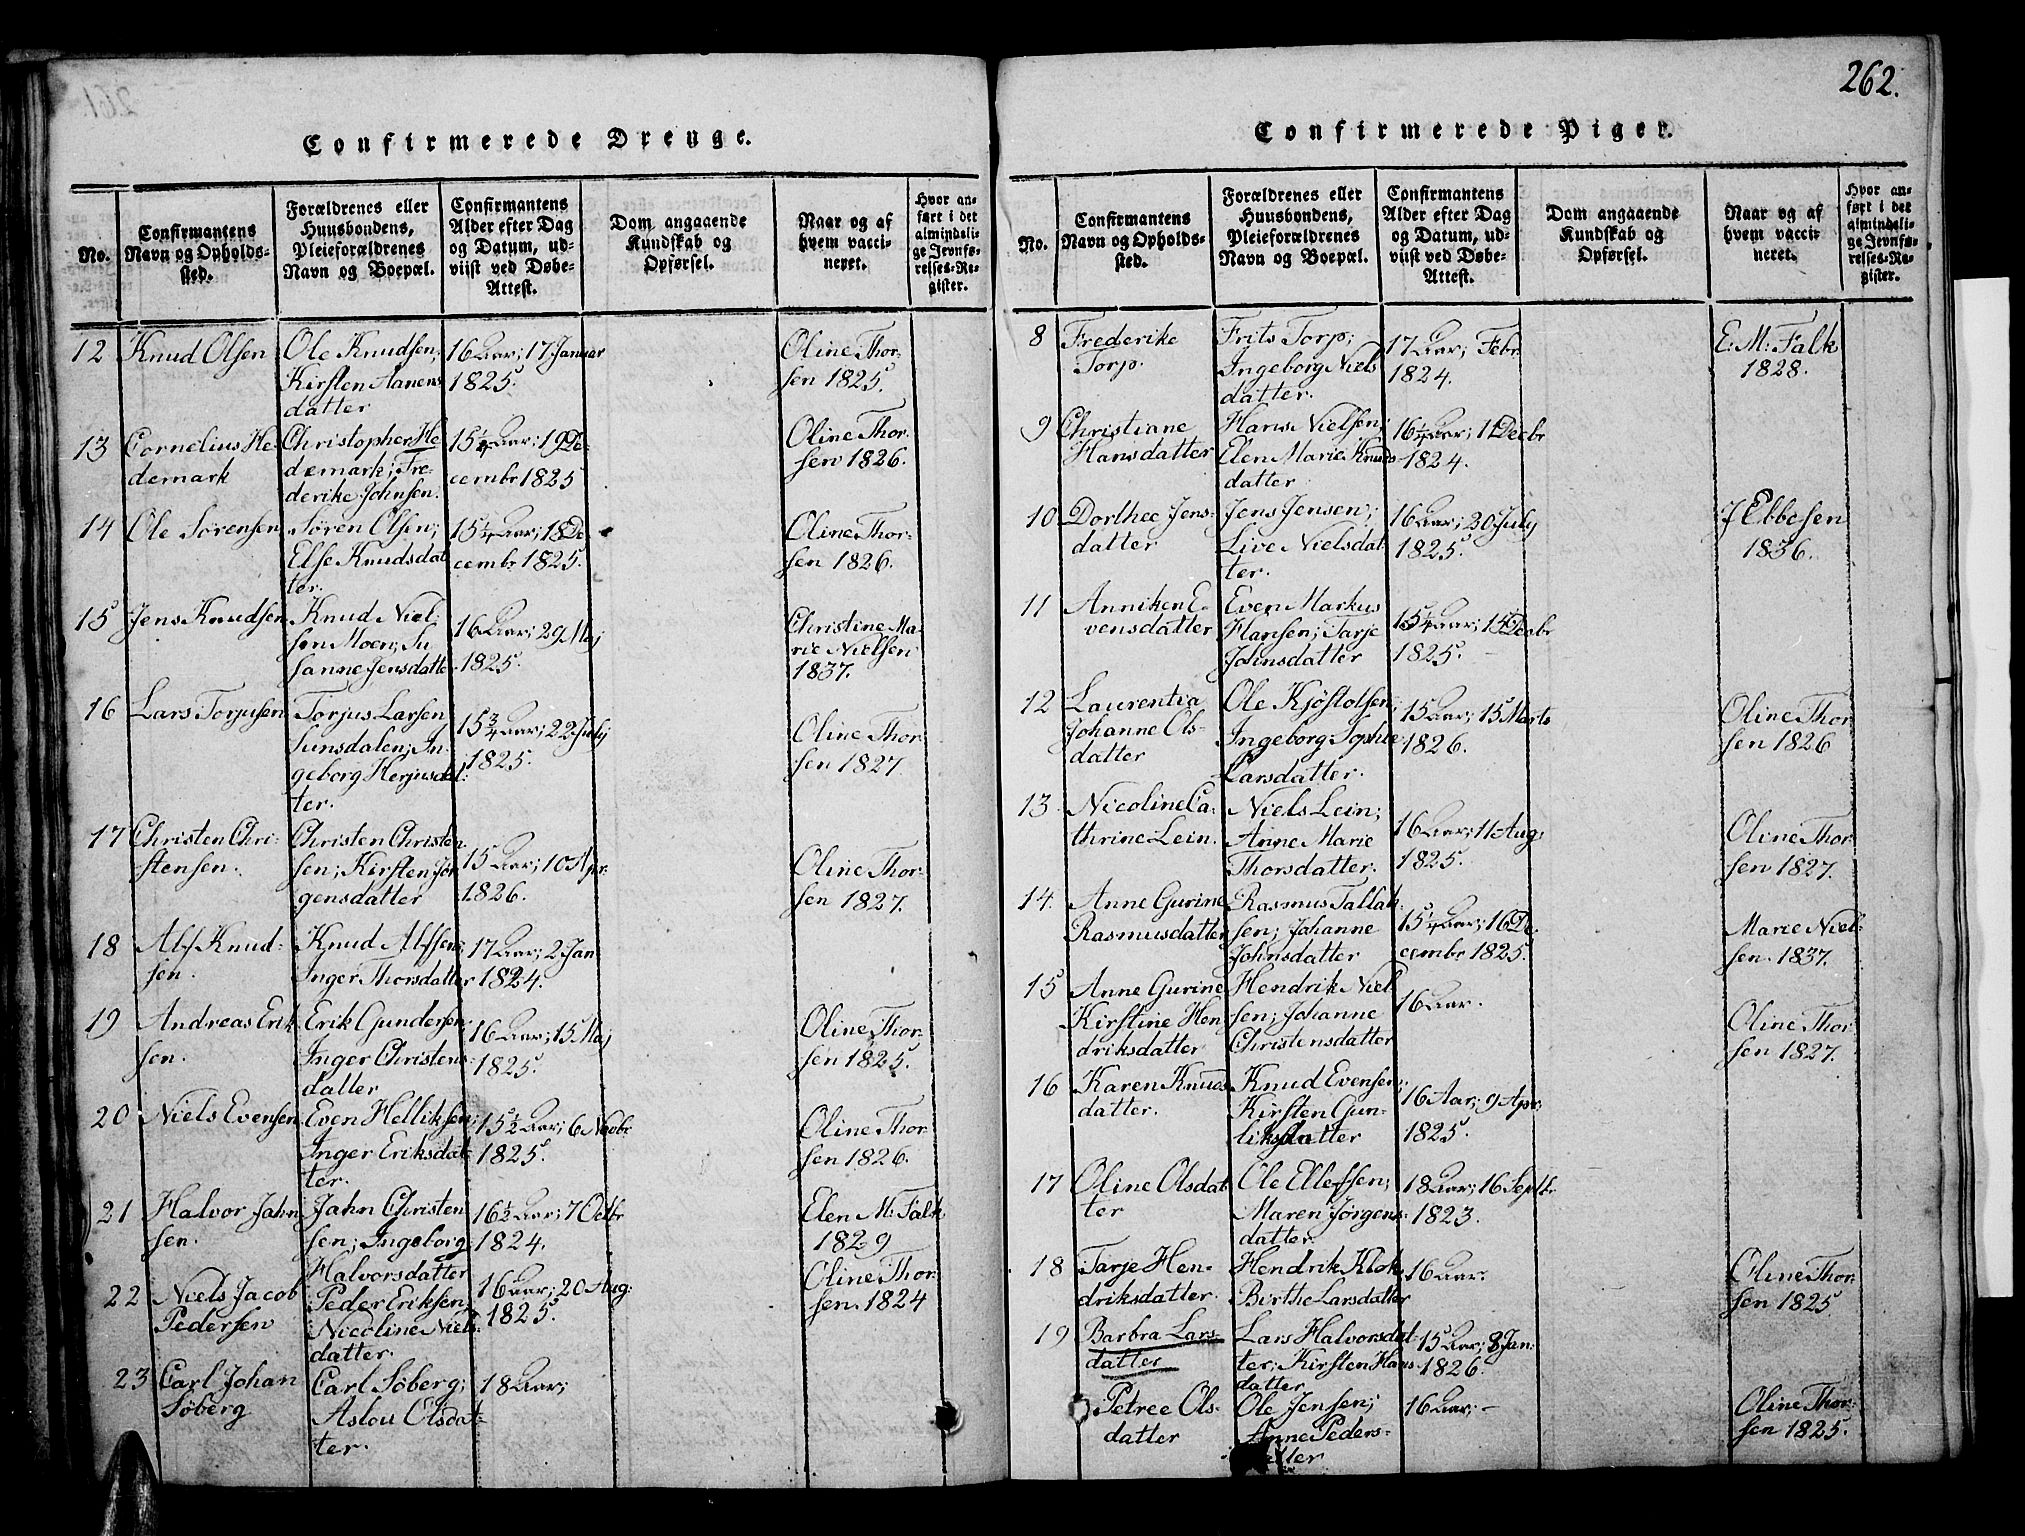 262.
Confirmerede Drenge.
No.
Confirmantens
Navn og Opholds-
sted.
Forældrenes eller
Huusbondens,
Pleieforældrenes
Navn og Boepæl.
Confirmantens
Alder efter Dag
og Datum, ud-
viist ved Døbe-
Attest.
Dom angaaende
Kundskab og
Opførsel.
Naar og af
hvem vacci-
neret.
Hvor an-
ført i det
almindeli-
ge Jevnfø-
relses-Re-
gister.
12
Knud Olsen
Ole Knudsen;
Kirsten Aanens
datter
16 Aar; 17 Januar
1825.
Oline Thor-
sen 1825.
13
Cornelius He-
demark
Christopher He-
demark; Fre-
derike Johnsen.
15¼ Aar; 19 De-
cembr 1825
Oline Thor-
sen 1826.
14
Ole Sørensen
Søren Olsen;
Else Knudsdat
ter.
15¼ Aar; 18 De
cembr 1825.
Oline Thor-
sen 1826.
15
Jens Knudsen
Knud Niel-
sen Moen; Su
sanne Jensdatte
16 Aar; 29 Maj
1825.
Christine Ma-
rie Nielsen
1837.
16
Lars Torjusen
Torjus Larsen
Sunsdalen; In-
geborg Herjusdat-
ter.
15¾ Aar; 22 July
1825.
Oline Thor
sen 1827.
17
Christen Chri-
stensen.
Christen Christen
sen; Kirsten Jør
gensdatter
15 Aar; 10 Apr.
1826.
Oline Thor-
sen 1827.
18
Alf Knud-
sen.
Knud Alfsen;
Inger Thorsdatter
17 Aar; 2 Jan
1824.
19
Andreas Erik
sen.
Erik Gundersen
Inger Christens-
datter
16 Aar; 15 Maj
1825.
Oline Thor-
sen 1825.
20
Niels Evensen
Even Helliksen;
Inger Eriksdat-
ter.
15½ Aar; 6 Novbr
1825.
Oline Thor
sen 1826.
21
Halvor Jahn
sen.
Jahn Christen
sen; Ingeborg
Halvorsdatter
16½ Aar; 7 Octbr
1824.
Elen M: Falk
1829
22
Niels Jacob
Pedersen
Peder Eriksen;
Nicoline Niels-
datter.
16 Aar; 20 Aug:
1825.
Oline Thor-
sen. 1824
23
Carl Johan
Søberg
Carl Søberg;
Aslou Olsdat-
ter.
18 Aar;
Confirmerede Piger.
No.
Confirmantens
Navn og Opholds-
sted.
Forældrenes eller
Huusbondens,
Pleieforældrenes
Navn og Boepæl.
Confirmantens
Alder efter Dag
og Datum, ud-
viist ved Døbe-
Attest.
Dom angaaende
Kundskab og
Opførsel.
Naar og af
hvem vacci-
neret.
Hvor an-
ført i det
almindeli-
ge Jevnfø-
relses-Re-
gister.
8
Frederike
Torp.
Frits Torp;
Ingeborg Niels
datter.
17 Aar; Febr
1824.
E: M: Falk
1828.
9
Christiane
Hansdatter
Hans Nielsen;
Elen Marie Knuds
datter
16¼ Aar; 11 Decbr
1824.
10
Dorthee Jens-
datter
Jens Jensen;
Live Nielsdat
ter.
16 Aar; 20 July
1825.
J Ebbesen
1836.
11
Anniken E-
vensdatter
Even Markus
Hansen; Tarje
Johnsdatter
15¼ Aar; 14 Decbr
1825.
12
Laurentia
Johanne Ols-
datter
Ole Kjøstolsen;
Ingeborg Sophie
Larsdatter.
15 Aar; 15 Marts
1826.
Oline Thor
sen 1826
13
Nicoline Ca-
thrine Lein.
Niels Lein;
Anne Marie
Thorsdatter.
16 Aar; 11 Aug:
1825.
Oline Thor-
sen 1827.
14.
Anne Gurine
Rasmusdatter
Rasmus Tallak-
sen; Johanne
Johnsdatter
15¼ Aar; 16 De-
cembr 1825.
Marie Niel-
sen. 1837.
15
Anne Gurine
Kirstine Hen
driksdatter
Hendrik Niel
sen; Johanne
Christensdatter
16 Aar.
Oline Thor-
sen 1827.
16
Karen Knuds
datter.
Knud Evensen;
Kirsten Gun-
liksdatter
16 Aar; 9 Apr:
1825.
17
Oline Olsdat
ter
Ole Ellefsen;
Maren Jørgens-
datter.
18 Aar; 16 Septbr
1823.
18
Tarje Hen-
driksdatter.
Hendrik Klok
Birthe Larsdatter
16 Aar.
Oline Thor-
sen 1825.
19
Barbra Lars-
datter
Lars Halvorsdat-
ter; Kirsten Hans
datter
15 Aar; 8 Jan:
1826.
Petree Ols-
datter
Ole Jensen;
Anne Peders-
datter
16 Aar; -
Oline Thor-
sen 1825.